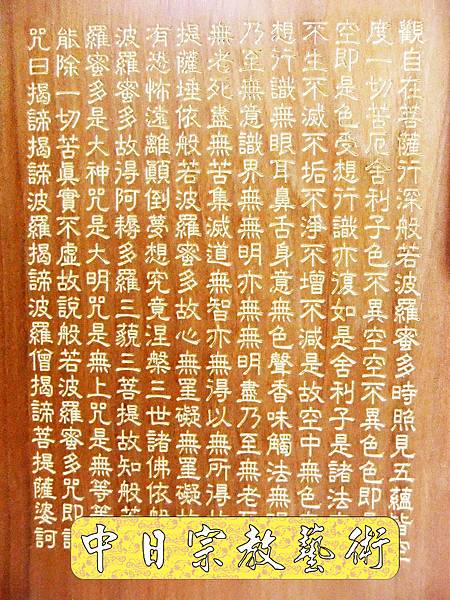 觀自在菩薩行深般若波羅蜜多時照見五蘊皆空
度一切苦厄舍利子色不異空空不異色色即
空即是色受想行識亦復如是舍利子是諸法
不生不滅不垢不淨不增不減是故空中無色
想行識無眼耳鼻舌身意無色聲香味觸法無
乃至無意識界無無明亦無無明盡乃至無老
無老死盡無苦集滅道無智亦無得以無所得
提薩埵依般若波羅蜜多故心無罣礙無罣礙
有恐怖遠離顛倒夢想究竟涅槃三世諸佛依般
波羅蜜多故得阿耨多羅三藐三菩提故知般若
羅蜜多是大神咒是大明咒是無上咒是無等等
能除一切苦真實不虛故說般若波羅蜜多咒即說
咒曰揭諦揭諦波羅揭諦波羅僧揭諦菩提薩婆訶
中日宗教藝術